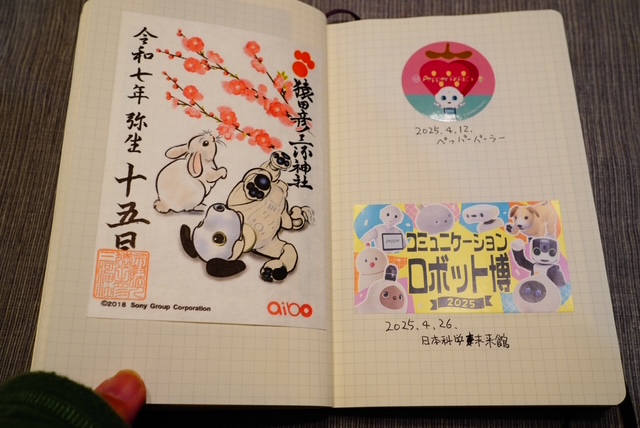 令和七年 弥生 十五日
猿田彦三河神社
©2018 Sony Group Corporation
aibo
2025.4.12.
ペッパーパーラー
コミュニケーション
ロボット博
2025
2025.4.26.
日本科学未来館